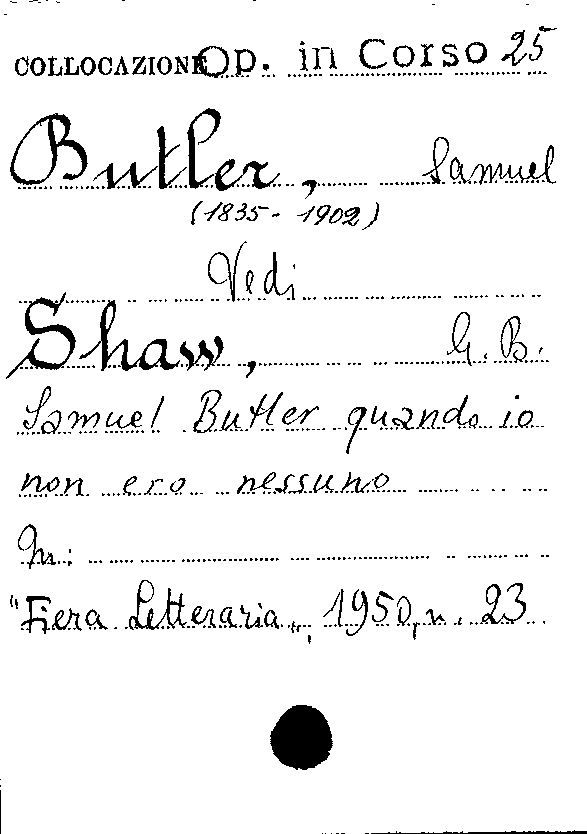 COLLOCAZIONE Op. in Corso 25
Butler, Samuel
(1835 - 1902)
Vedi
Shaw, G. B.
Samuel Butler quando io
non ero nessuno
In:
"Fiera Letteraria", 1950, n. 23